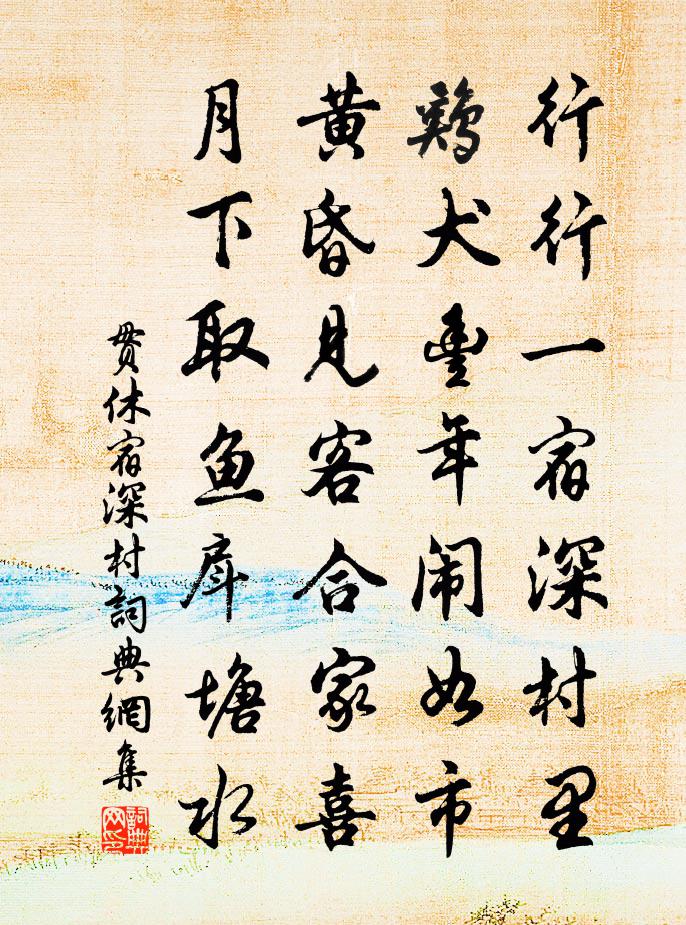 行行一宿深村里
鷄犬豐年闹如市
黄昏見客合家喜
月下取魚戽塘水
贯休宿深村詞典網集
詞典网印